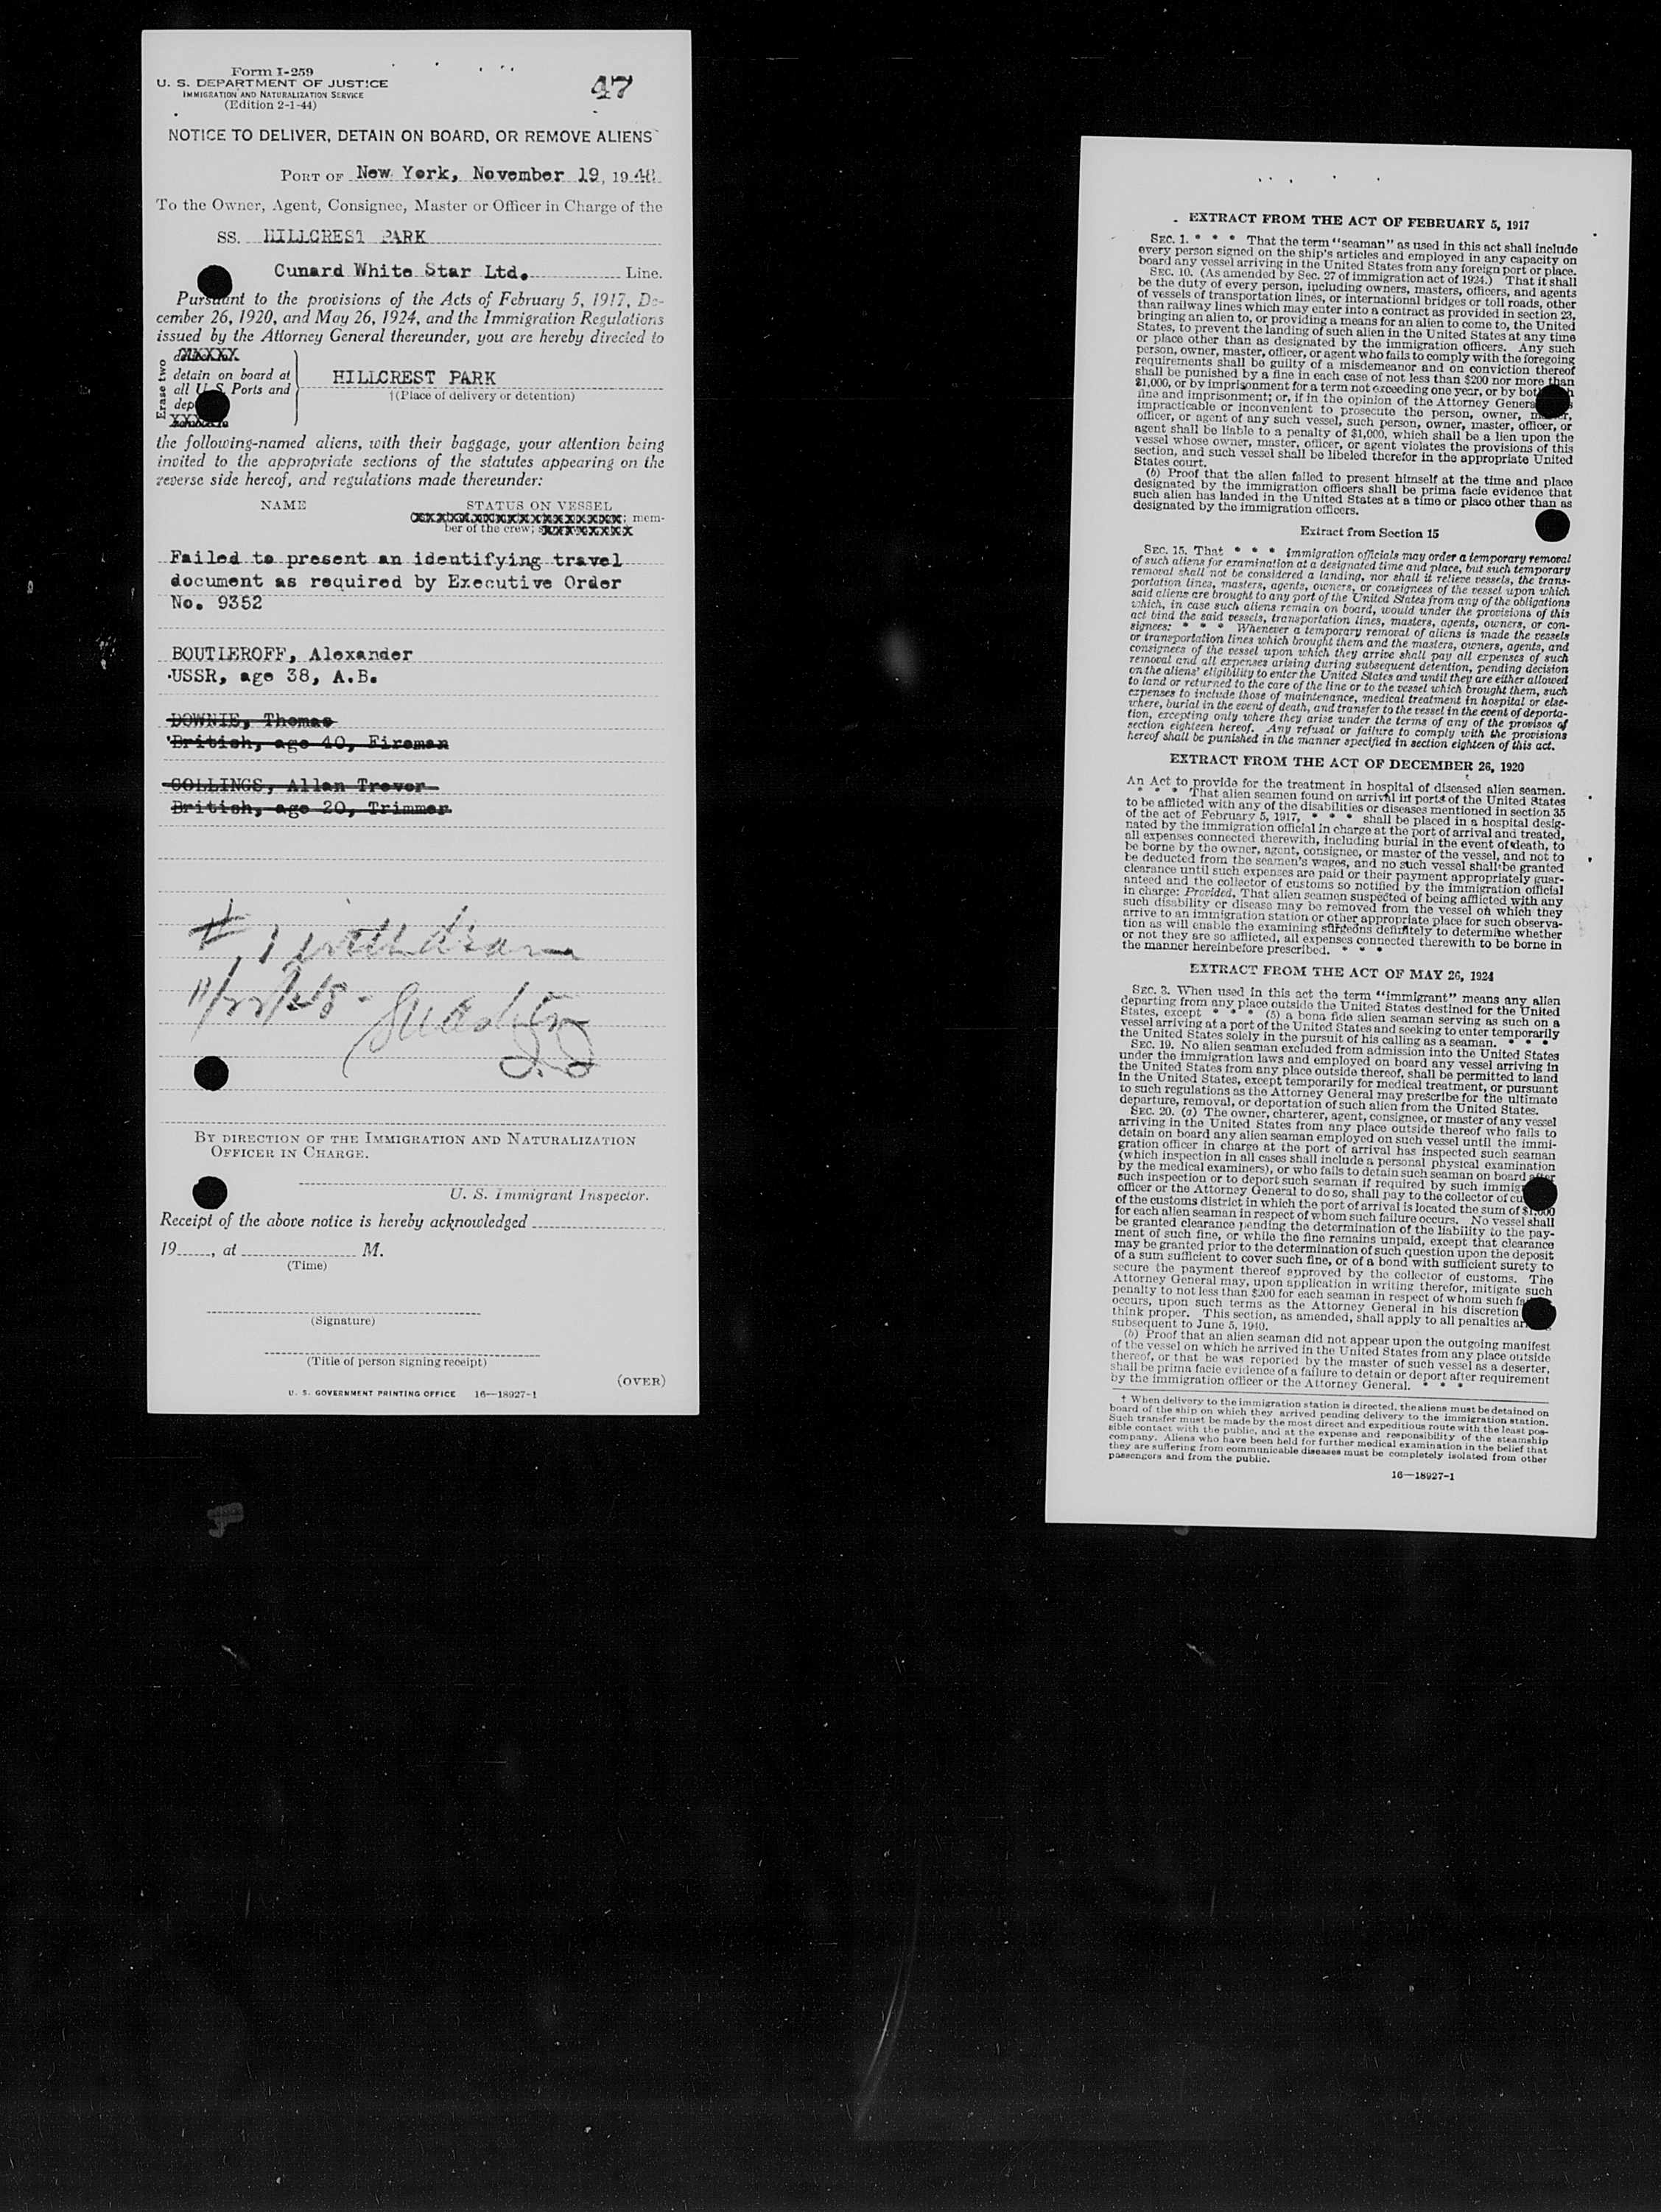 Form I-259
U. S. DEPARTMENT OF JUSTICE
IMMIGRATION AND NATURALIZATION SERVICE
(Edition 2-1-44)
47
NOTICE TO DELIVER, DETAIN ON BOARD, OR REMOVE ALIENS
PORT OF New York, November 19, 1948
To the Owner, Agent, Consignee, Master or Officer in Charge of the
SS. HILLCREST PARK
Cunard White Star Ltd. Line.
Pursuant to the provisions of the Acts of February 5, 1917, De-
cember 26, 1920, and May 26, 1924, and the Immigration Regulations
issued by the Attorney General thereunder, you are hereby directed to
Erase two
detain on board at
all U. S. Ports and
HILLCREST PARK
†(Place of delivery or detention)
the following-named aliens, with their baggage, your attention being
invited to the appropriate sections of the statutes appearing on the
reverse side hereof, and regulations made thereunder:
NAME STATUS ON VESSEL
mem-
ber of the crew;
Failed to present an identifying travel
document as required by Executive Order
No. 9352
BOUTIEROFF, Alexander
USSR, age 38, A.B.
DOWNIE, Thomas
British, age 40, Fireman
COLLINGS, Allan Trevor
British, age 20, Trimmer
# 1 withdrawn
11/22/48 -
BY DIRECTION OF THE IMMIGRATION AND NATURALIZATION
OFFICER IN CHARGE.
U. S. Immigrant Inspector.
Receipt of the above notice is hereby acknowledged
19, at M.
(Time)
(Signature)
(Title of person signing receipt)
(OVER)
U. S. GOVERNMENT PRINTING OFFICE 16—18927-1
EXTRACT FROM THE ACT OF FEBRUARY 5, 1917
SEC. 1. * * * That the term "seaman" as used in this act shall include
every person signed on the ship's articles and employed in any capacity on
board any vessel arriving in the United States from any foreign port or place.
SEC. 10. (As amended by Sec. 27 of immigration act of 1924.) That it shall
be the duty of every person, including owners, masters, officers, and agents
of vessels of transportation lines, or international bridges or toll roads, other
than railway lines which may enter into a contract as provided in section 23,
bringing an alien to, or providing a means for an alien to come to, the United
States, to prevent the landing of such alien in the United States at any time
or place other than as designated by the immigration officers. Any such
person, owner, master, officer, or agent who fails to comply with the foregoing
requirements shall be guilty of a misdemeanor and on conviction thereof
shall be punished by a fine in each case of not less than $200 nor more than
$1,000, or by imprisonment for a term not exceeding one year, or by both
fine and imprisonment; or, if in the opinion of the Attorney General
impracticable or inconvenient to prosecute the person, owner, master,
officer, or agent of any such vessel, such person, owner, master, officer, or
agent shall be liable to a penalty of $1,000, which shall be a lien upon the
vessel whose owner, master, officer, or agent violates the provisions of this
section, and such vessel shall be libeled therefor in the appropriate United
States court.
(b) Proof that the alien failed to present himself at the time and place
designated by the immigration officers shall be prima facie evidence that
such alien has landed in the United States at a time or place other than as
designated by the immigration officers.
Extract from Section 15
SEC. 15. That * * * immigration officials may order a temporary removal
of such aliens for examination at a designated time and place, but such temporary
removal shall not be considered a landing, nor shall it relieve vessels, the trans-
portation lines, masters, agents, owners, or consignees of the vessel upon which
said aliens are brought to any port of the United States from any of the obligations
which, in case such aliens remain on board, would under the provisions of this
act bind the said vessels, transportation lines, masters, agents, owners, or con-
signees: * * * Whenever a temporary removal of aliens is made the vessels
or transportation lines which brought them and the masters, owners, agents, and
consignees of the vessel upon which they arrive shall pay all expenses of such
removal and all expenses arising during subsequent detention, pending decision
on the aliens' eligibility to enter the United States and until they are either allowed
to land or returned to the care of the line or to the vessel which brought them, such
expenses to include those of maintenance, medical treatment in hospital or else-
where, burial in the event of death, and transfer to the vessel in the event of deporta-
tion, excepting only where they arise under the terms of any of the provisos of
section eighteen hereof. Any refusal or failure to comply with the provisions
hereof shall be punished in the manner specified in section eighteen of this act.
EXTRACT FROM THE ACT OF DECEMBER 26, 1920
An Act to provide for the treatment in hospital of diseased alien seamen.
* * * That alien seamen found on arrival in ports of the United States
to be afflicted with any of the disabilities or diseases mentioned in section 35
of the act of February 5, 1917, * * * shall be placed in a hospital desig-
nated by the immigration official in charge at the port of arrival and treated,
all expenses connected therewith, including burial in the event of death, to
be borne by the owner, agent, consignee, or master of the vessel, and not to
be deducted from the seamen's wages, and no such vessel shall be granted
clearance until such expenses are paid or their payment appropriately guar-
anteed and the collector of customs so notified by the immigration official
in charge: Provided, That alien seamen suspected of being afflicted with any
such disability or disease may be removed from the vessel on which they
arrive to an immigration station or other appropriate place for such observa-
tion as will enable the examining surgeons definitely to determine whether
or not they are so afflicted, all expenses connected therewith to be borne in
the manner hereinbefore prescribed. * * *
EXTRACT FROM THE ACT OF MAY 26, 1924
SEC. 3. When used in this act the term "immigrant" means any alien
departing from any place outside the United States destined for the United
States, except * * * (5) a bona fide alien seaman serving as such on a
vessel arriving at a port of the United States and seeking to enter temporarily
the United States solely in the pursuit of his calling as a seaman. * * *
SEC. 19. No alien seaman excluded from admission into the United States
under the immigration laws and employed on board any vessel arriving in
the United States from any place outside thereof, shall be permitted to land
in the United States, except temporarily for medical treatment, or pursuant
to such regulations as the Attorney General may prescribe for the ultimate
departure, removal, or deportation of such alien from the United States.
SEC. 20. (a) The owner, charterer, agent, consignee, or master of any vessel
arriving in the United States from any place outside thereof who fails to
detain on board any alien seaman employed on such vessel until the immi-
gration officer in charge at the port of arrival has inspected such seaman
(which inspection in all cases shall include a personal physical examination
by the medical examiners), or who fails to detain such seaman on board after
such inspection or to deport such seaman if required by such immigr
officer or the Attorney General to do so, shall pay to the collector of cu
of the customs district in which the port of arrival is located the sum of $1,000
for each alien seaman in respect of whom such failure occurs. No vessel shall
be granted clearance pending the determination of the liability to the pay-
ment of such fine, or while the fine remains unpaid, except that clearance
may be granted prior to the determination of such question upon the deposit
of a sum sufficient to cover such fine, or of a bond with sufficient surety to
secure the payment thereof approved by the collector of customs. The
Attorney General may, upon application in writing therefor, mitigate such
penalty to not less than $200 for each seaman in respect of whom such fa
occurs, upon such terms as the Attorney General in his discretion
think proper. This section, as amended, shall apply to all penalties ar
subsequent to June 5, 1940.
(b) Proof that an alien seaman did not appear upon the outgoing manifest
of the vessel on which he arrived in the United States from any place outside
thereof, or that he was reported by the master of such vessel as a deserter,
shall be prima facie evidence of a failure to detain or deport after requirement
by the immigration officer or the Attorney General. * * *
† When delivery to the immigration station is directed, the aliens must be detained on
board of the ship on which they arrived pending delivery to the immigration station.
Such transfer must be made by the most direct and expeditious route with the least pos-
sible contact with the public, and at the expense and responsibility of the steamship
company. Aliens who have been held for further medical examination in the belief that
they are suffering from communicable diseases must be completely isolated from other
passengers and from the public.
16—18927-1